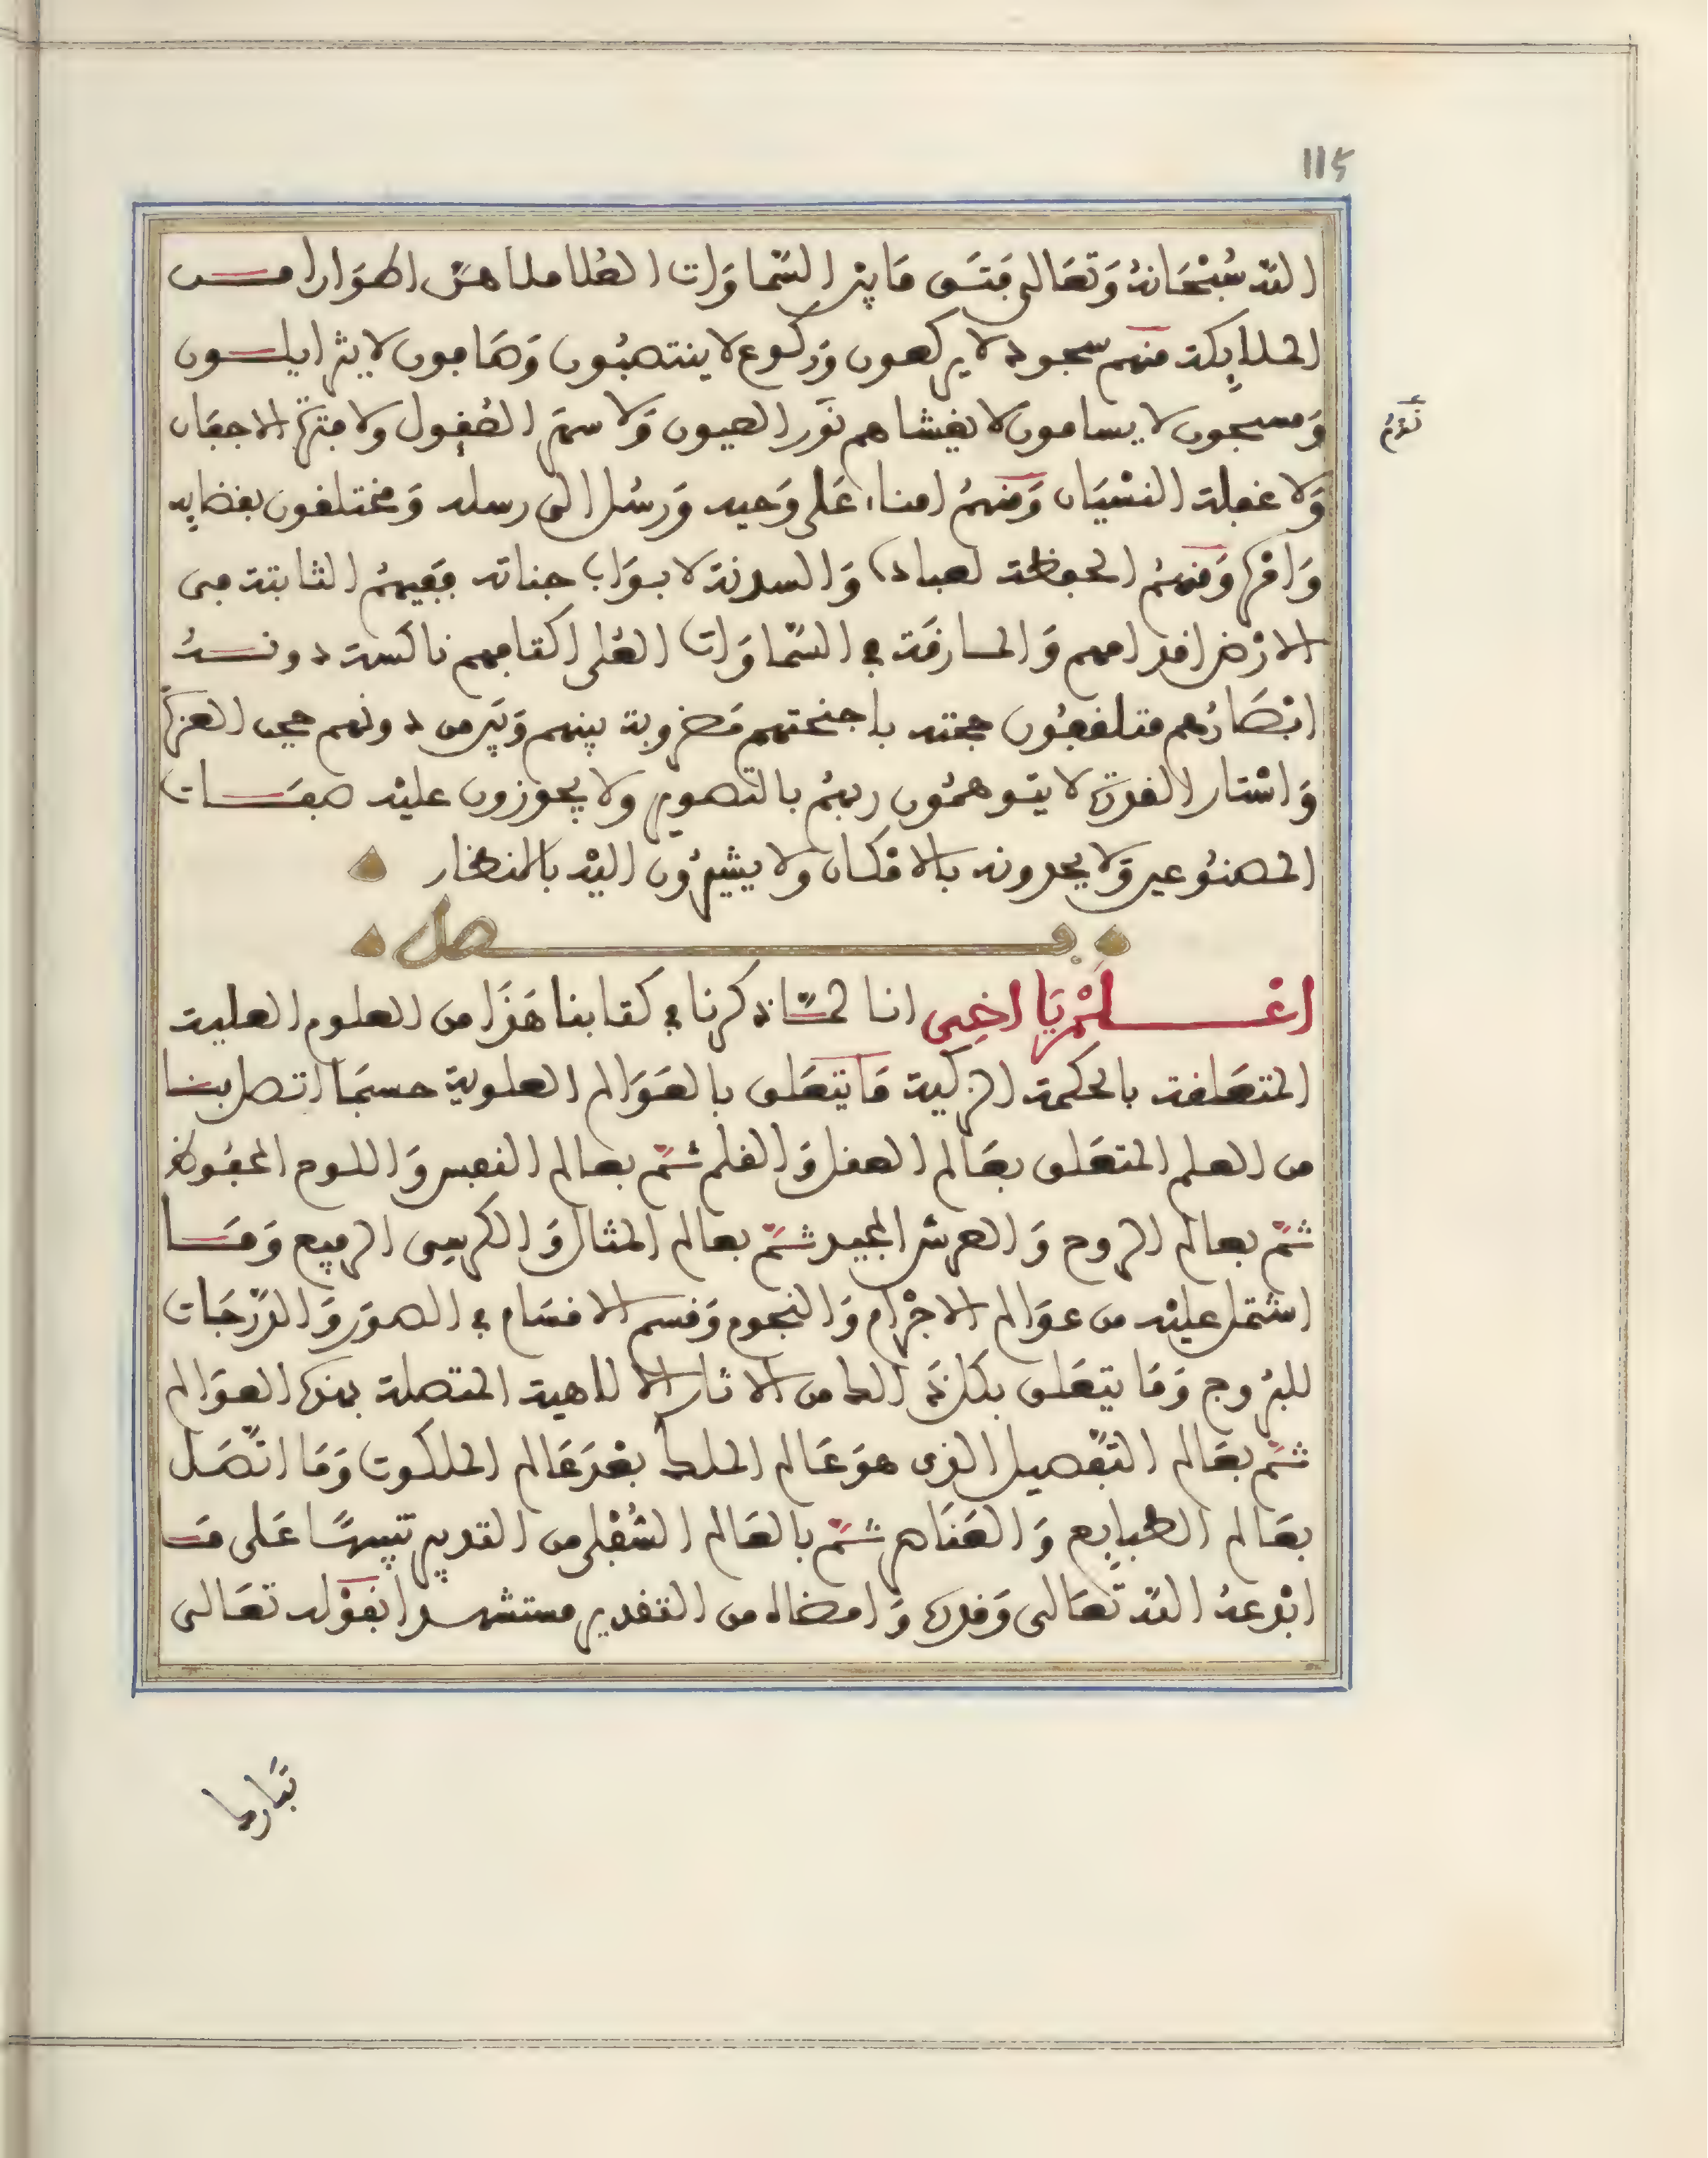 115
الله سبحانه وتعالى فتق ما بين السماوات العلا ملاهن اطوارا من
الملايكة منهم سجود لا يركعون وركوع لا ينتصبون وصافون لا يتزايلون
ومسبحون لا يسامون لا يغشاهم نور العيون ولا سهو العقول ولا فترة الاجفان
نوم
ولا غفلة النسيان ومنهم امناء على وحيه ورسل الى رسله ومختلفون بقضايه
وامره ومنهم الحفظة لعباده والسدنة لابواب جناته ففيهم الثابتة في
الارض اقدامهم والمارقة في السماوات العلى اكتافهم ناكسة دونه
ابصارهم متلفعون تحته باجنحتهم مضروبة بينهم وبين من دونهم حجب العزة
واستار القدرة لا يتوهمون ربهم بالتصوير ولا يجوزون عليه صفات
المصنوعين ولا يحدونه بالامكان ولا يشيرون اليه بالنظار
فصل
اعلم يا اخي انا لما ذكرنا في كتابنا هذا من العلوم العلية
المتعلقة بالحكمة الزكية ما يتعلق بالعوالم العلوية حسبما اتصل بنا
من العلم المتعلق بعالم العقل والقلم ثم بعالم النفس واللوح المحفوظ
ثم بعالم الروح والعرش المجيد ثم بعالم المثال والكرسي الرفيع وما
اشتمل عليه من عوالم الاجرام والنجوم وقسم الاقسام في الصور والدرجات
للبروج وما يتعلق بكل ذالك من الاثار الالاهية المتصلة بهذه العوالم
ثم بعالم التفصيل الذي هو عالم الملك بعد عالم الملكوت وما اتصل
بعالم الطبايع والعناصر ثم بالعالم السفلي من التدبير تنبيها على ما
ابدعه الله تعالى وقدره وامضاه من التقدير مستشهدا بقوله تعالى
تبارك